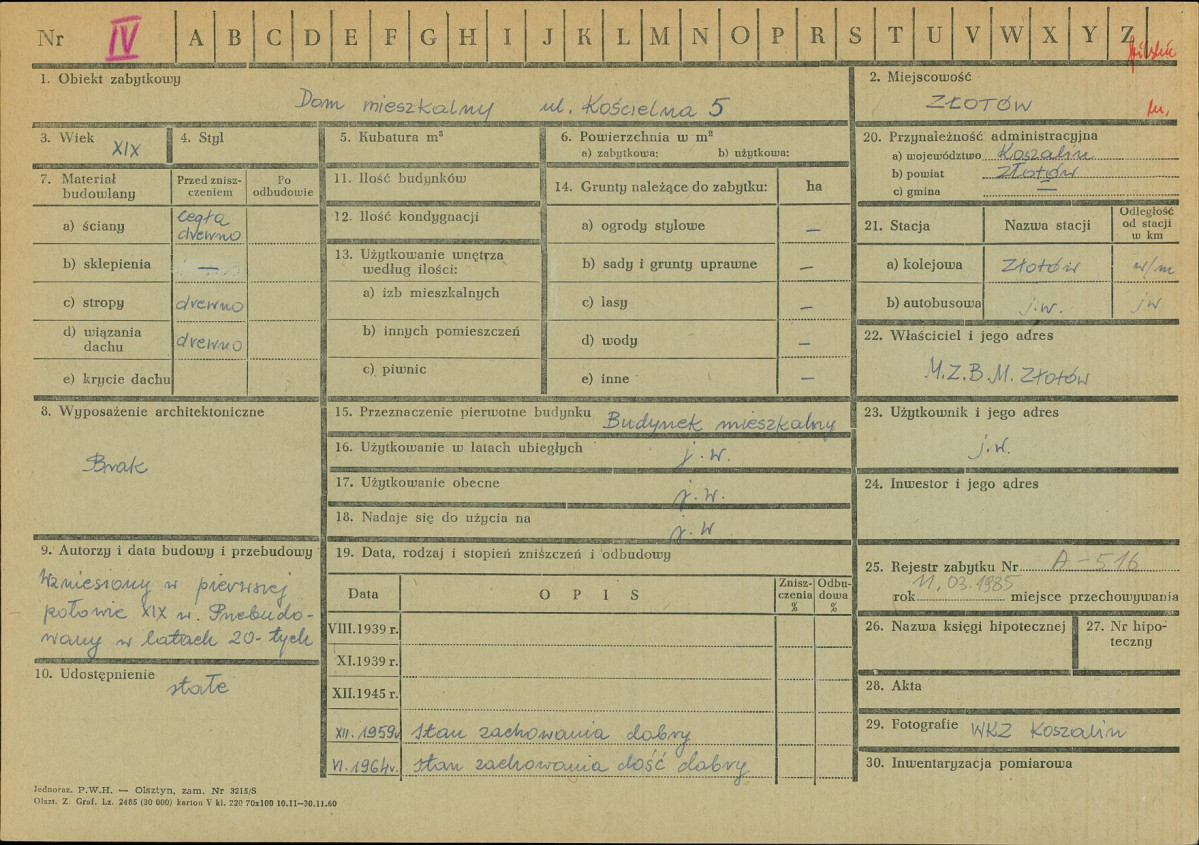 Nr IV A B C D E F G H I J K L M N O P R S T U V W X Y Z
1. Obiekt zabytkowy
Dom mieszkalny ul. Kościelna 5
2. Miejscowość
ZŁOTÓW
3. Wiek XIX
4. Styl
5. Kubatura m³
6. Powierzchnia w m²
a) zabytkowa: b) użytkowa:
20. Przynależność administracyjna
a) województwo Koszalin
b) powiat Złotów
c) gmina —
7. Materiał budowlany
Przed zniszczeniem
Po odbudowie
a) ściany cegła
drewno
b) sklepienia —
c) stropy drewno
d) wiązania
dachu drewno
e) krycie dachu
11. Ilość budynków
12. Ilość kondygnacji
13. Użytkowanie wnętrza
według ilości:
a) izb mieszkalnych
b) innych pomieszczeń
c) piwnic
14. Grunty należące do zabytku: ha
a) ogrody stylowe —
b) sady i grunty uprawne —
c) lasy —
d) wody —
e) inne —
21. Stacja Nazwa stacji
Odległość
od stacji
w km
a) kolejowa Złotów w/m
b) autobusowa j.w. jw
22. Właściciel i jego adres
M.Z.B.M. Złotów
8. Wyposażenie architektoniczne
Brak
15. Przeznaczenie pierwotne budynku Budynek mieszkalny
16. Użytkowanie w latach ubiegłych j.w.
17. Użytkowanie obecne j.w.
18. Nadaje się do użycia na j.w
23. Użytkownik i jego adres
j.w.
24. Inwestor i jego adres
9. Autorzy i data budowy i przebudowy
Wzniesiony w pierwszej
połowie XIX w. Przebudo-
wany w latach 20-tych
10. Udostępnienie
stałe
19. Data, rodzaj i stopień zniszczeń i odbudowy
Data O P I S
Znisz-
czenia
%
Odbu-
dowa
%
VIII.1939 r.
XI.1939 r.
XII.1945 r.
XII.1959r Stan zachowania dobry
VI.1964r. Stan zachowania dość dobry
25. Rejestr zabytku Nr A-516
11.03.1985
rok miejsce przechowywania
26. Nazwa księgi hipotecznej
27. Nr hipo-
teczny
28. Akta
29. Fotografie WKZ Koszalin
30. Inwentaryzacja pomiarowa
Jednoraz. P.W.H. — Olsztyn, zam. Nr 3215/S
Olszt. Z. Graf. Lz. 2485 (30 000) karton V kl. 220 70x100 10.11—30.11.60